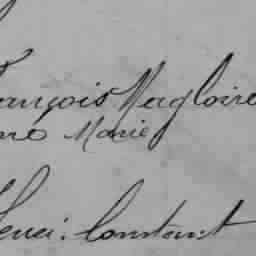 François Magloire
Marie
Henri. Constant